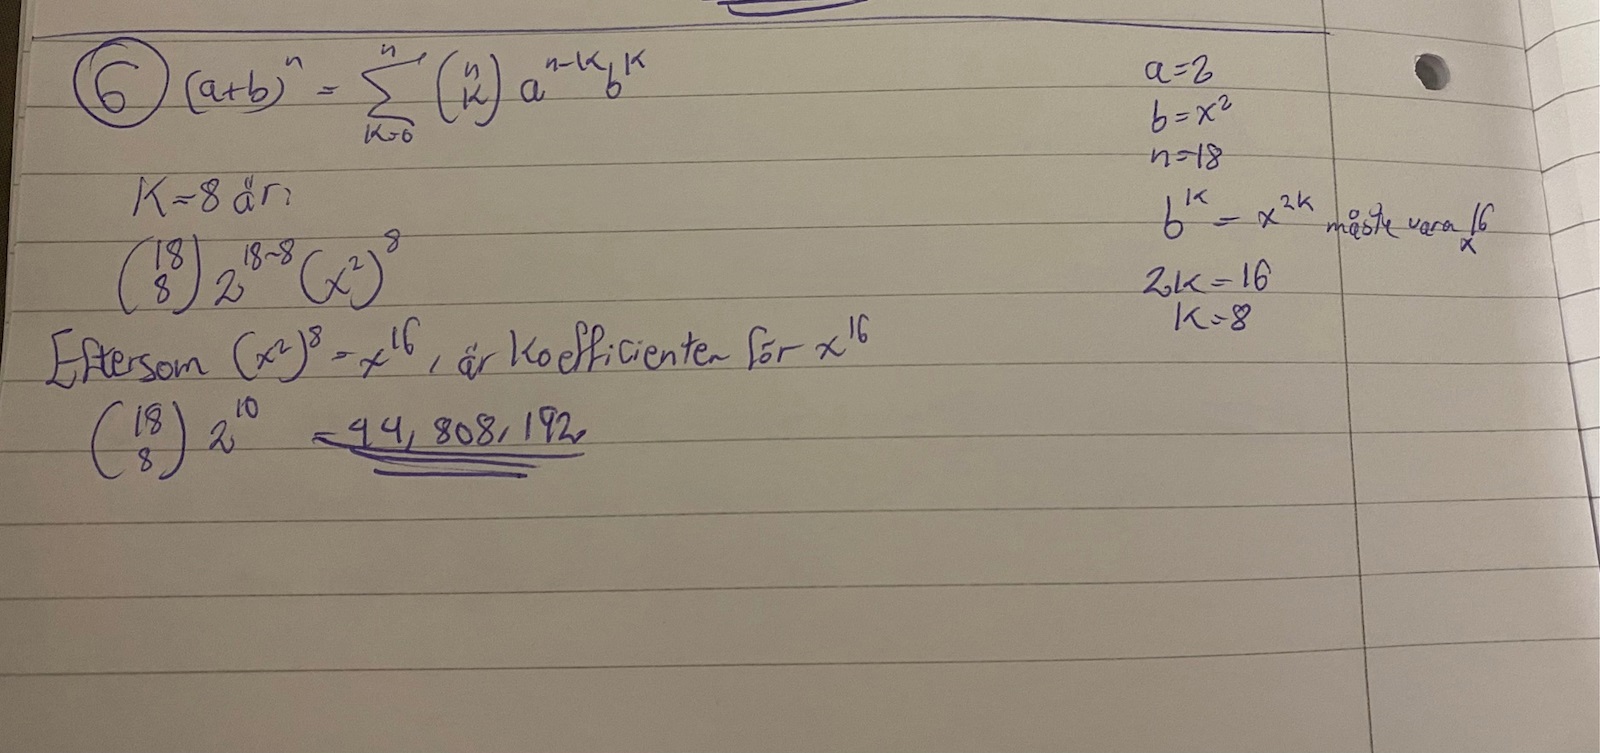 ⑥ (a+b)^n = ∑_{k=0}^{n} (n över k) a^{n-k} b^k
K=8 är:
(18 över 8) 2^{18-8} (x^2)^8
Eftersom (x^2)^8 = x^{16}, är Koefficienten för x^{16}
(18 över 8) 2^{10} = 44,808,192
a=2
b=x^2
n=18
b^k = x^{2k} måste vara x^{16}
2k=16
k=8